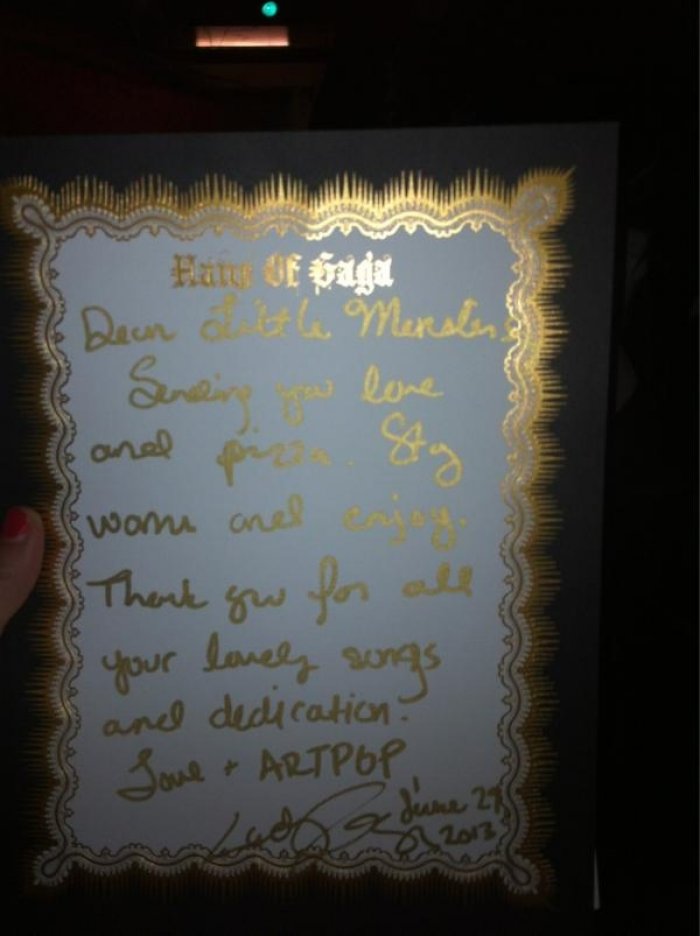 Haus Of Gaga
Dear Little Monsters,
Sending you love
and pizza. Stay
warm and enjoy.
Thank you for all
your lovely songs
and dedication.
Love + ARTPOP
Lady Gaga June 29,
2013